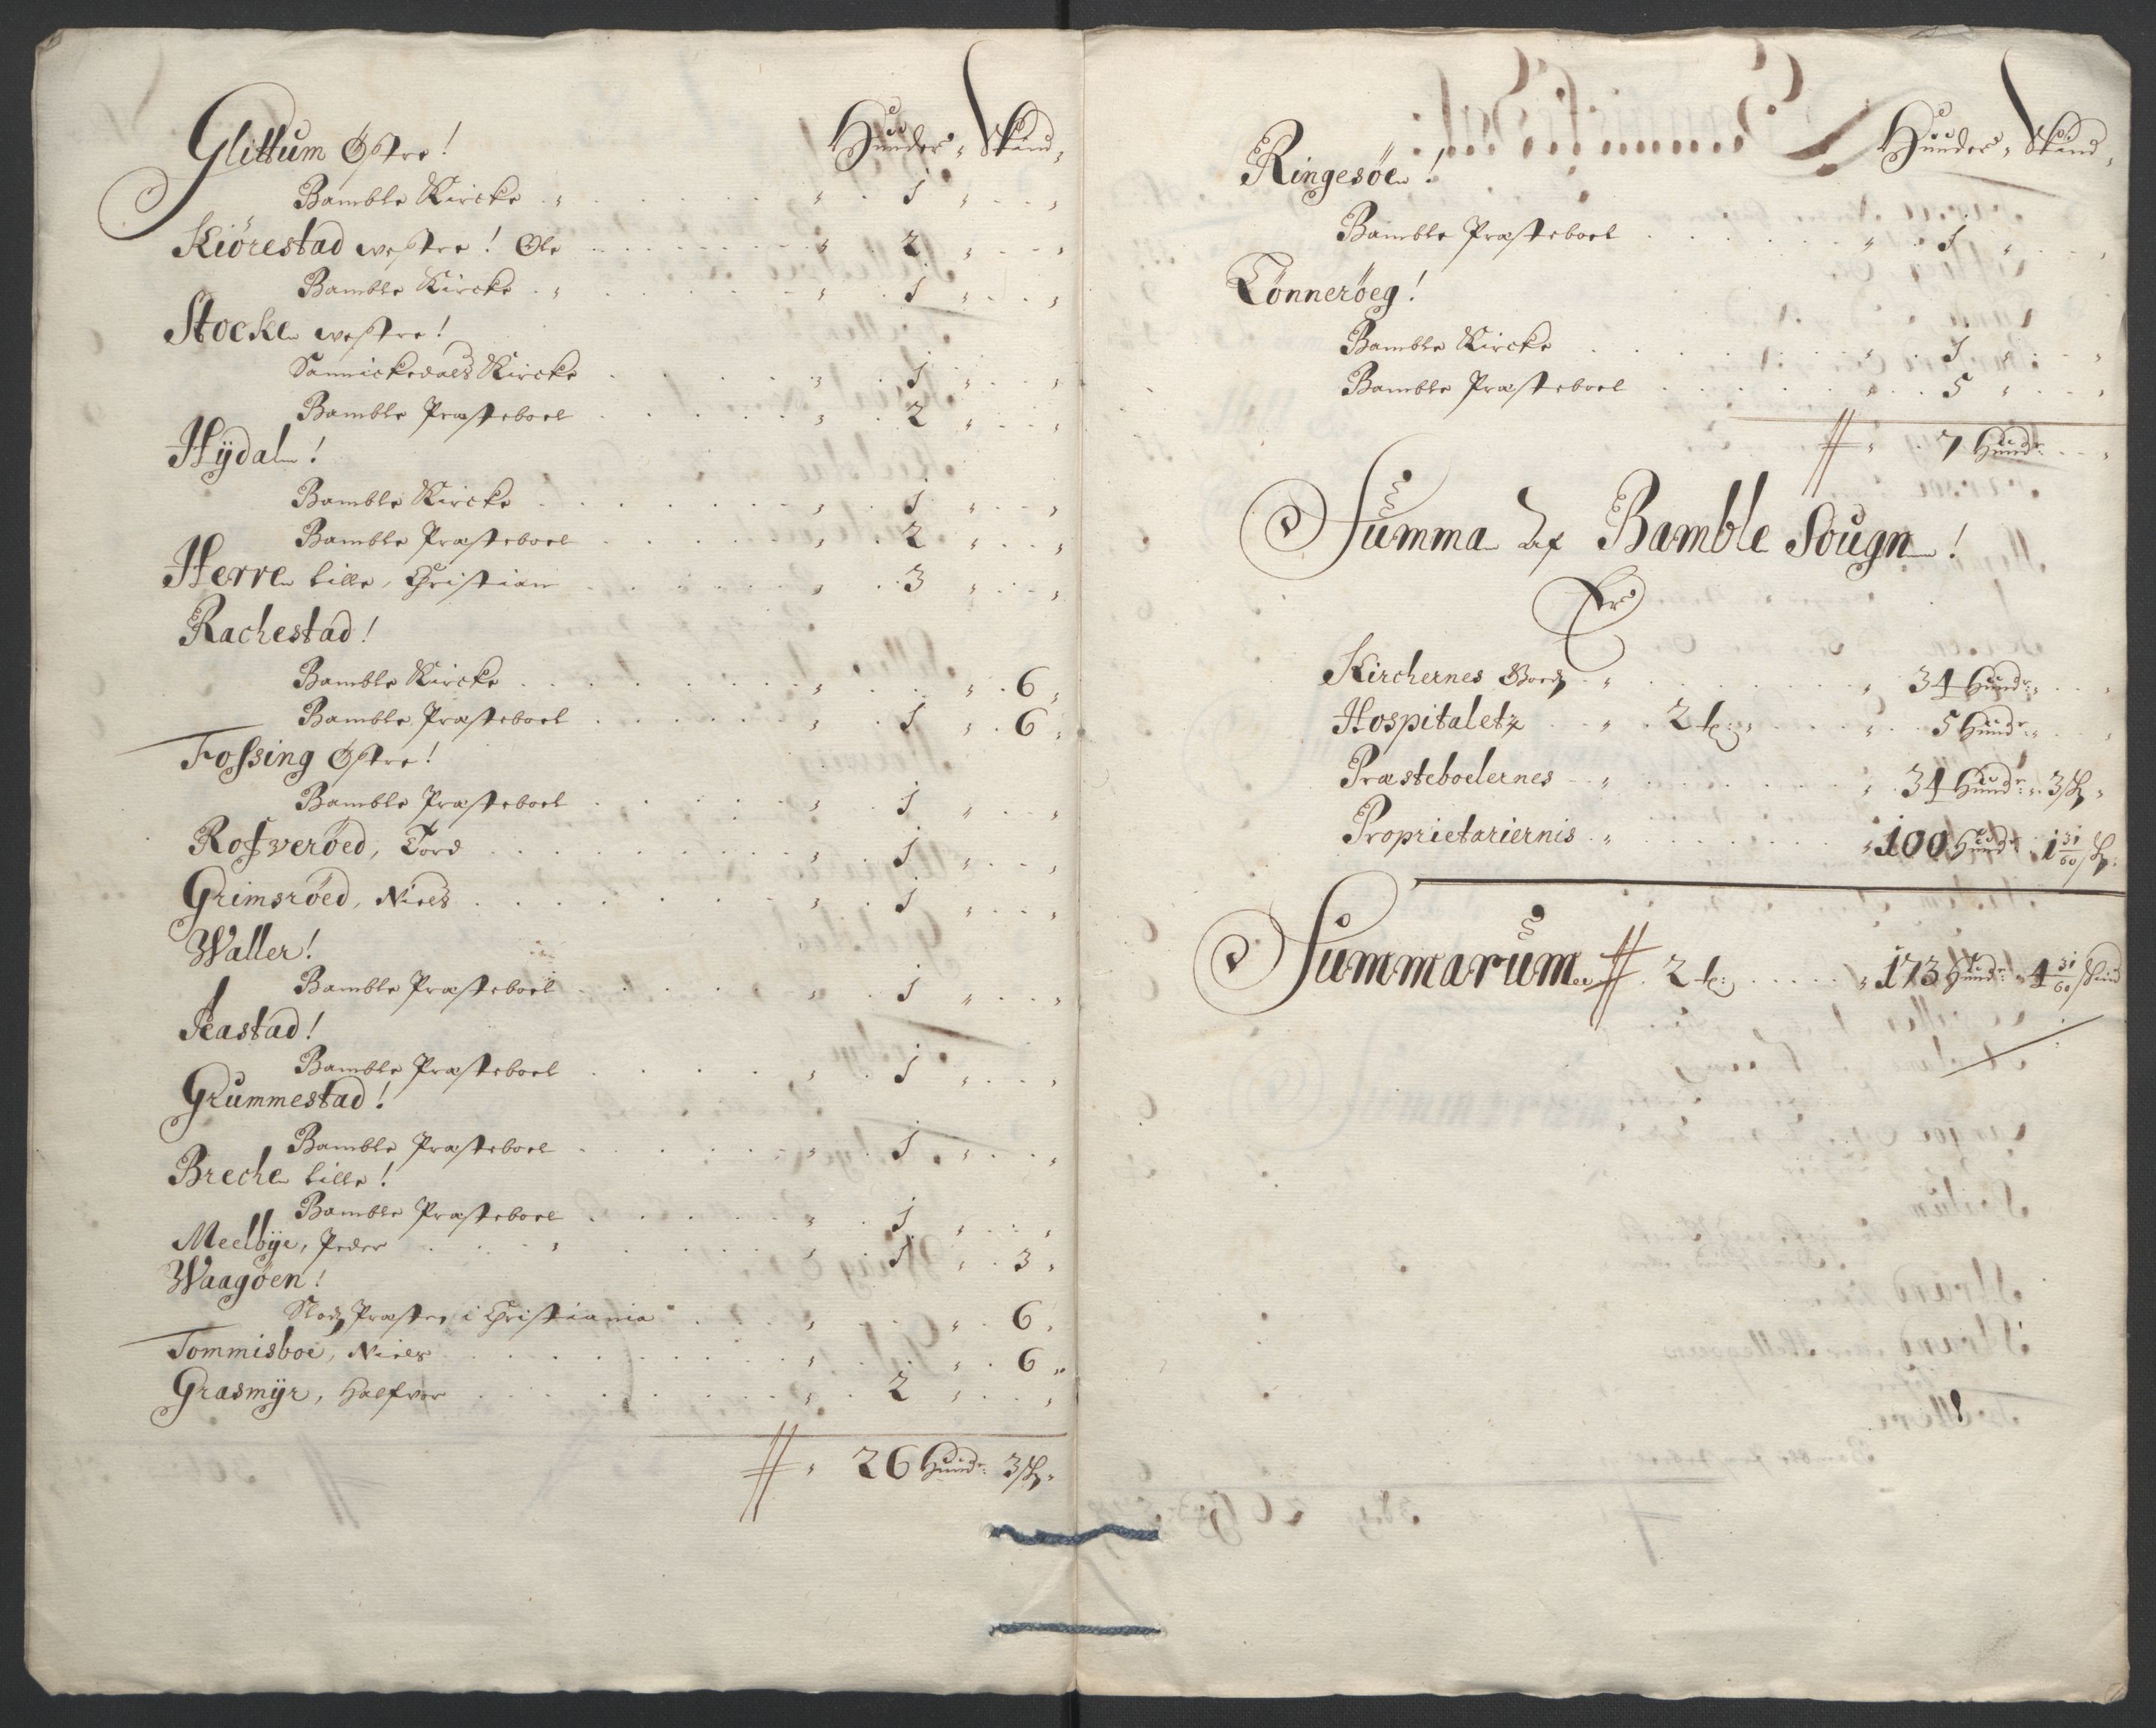 Hunder, Skind,
Glittum Østre!
Bamble Kircke . . 1
Kiörestad westre! Ole . . 2
Bamble Kircke . . 1
Stocke westre!
Sannickedals Kircke . . 1
Bamble Præsteboel . . 2
Hÿdal!
Bamble Kircke . . 1
Bamble Præsteboel . . 2
Herre lille, Christian . . 3
Rachestad!
Bamble Kircke . . 6
Bamble Præsteboel . . 1 . 6
Fossing Østre!
Bamble Præsteboel . . 1
Rosveröed, Tord . . 1
Grimsröed, Niels . . 1
Waller!
Bamble Præsteboel . . 1
Aastad!
Bamble Præsteboel . . 1
Grummestad!
Bamble Præsteboel . . 1
Breche lille!
Bamble Præsteboel . . 1
Meelbÿe, Peder . . 1 . 3
Waagöen!
Slodz Præsten i Christiania . . 6
Tommisboe, Niels . . 6
Grasmÿr, Halfvor . . 2
26 Hund: 3 sk:
Hunder, Skind,
Ringesöe!
Bamble Præsteboel . . 1
Tönneröeg!
Bamble Kircke . . 1
Bamble Præsteboel . . 5
7 Hund:
Summa af Bamble Sougn!
Er
Kirchernes Goedz . . 34 Hund:
Hospitaletz . . 2 t: . . 5 Hund:
Præsteboelernes . . 34 Hund: 3 sk:
Proprietariernis . . 100 Hund: 1 31/60 sk:
Summarum 2 t: . . 173 Hund: 4 31/60 Skind